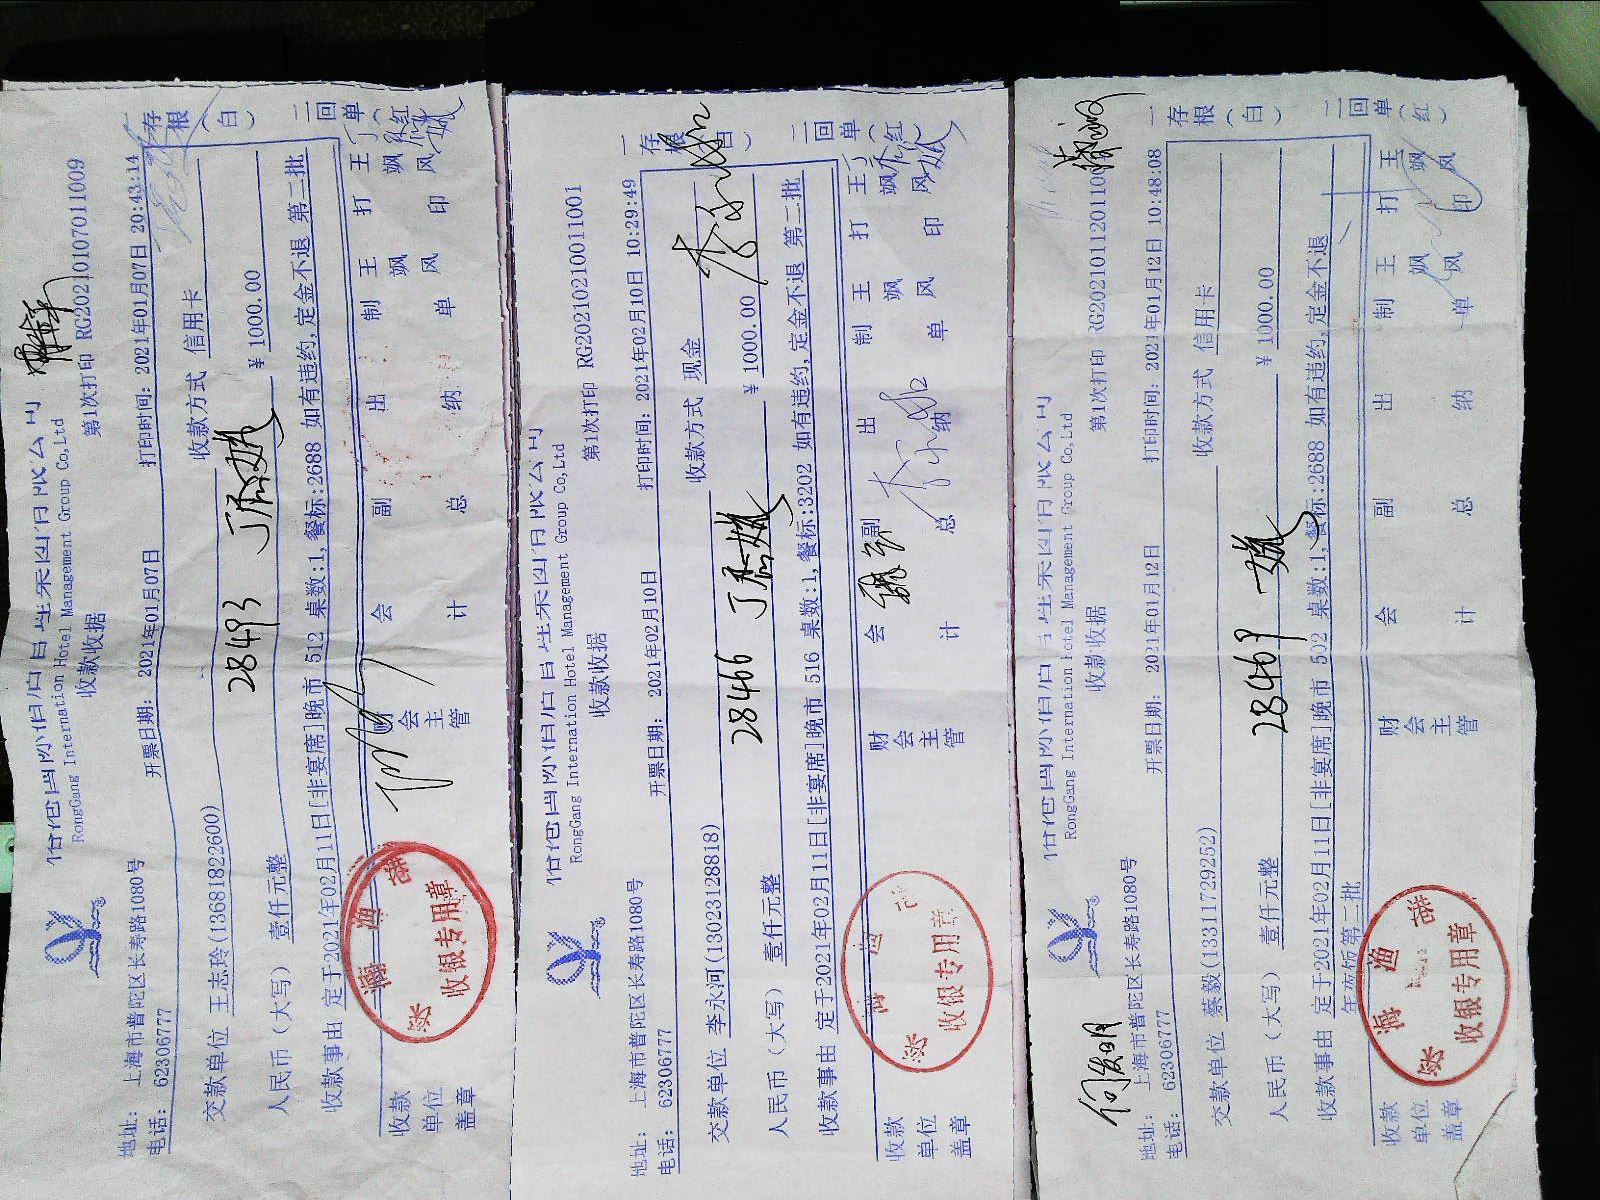 RongGang International Hotel Management Group Co,Ltd
收款收据
第1次打印 RG20210107011009
地址： 上海市普陀区长寿路1080号
电话： 62306777
开票日期： 2021年01月07日
打印时间：2021年01月07日 20:43:14
交款单位 王志玲(13681822600)
收款方式 信用卡
28493
人民币（大写） 壹仟元整
¥ 1000.00
收款事由 定于2021年02月11日[非宴席]晚市 512 桌数:1,餐标:2688 如有违约,定金不退 第二批
收款单位盖章
财会主管
会计
副总
出纳
制单
王飒风
打印
王飒风
一存根（白）
二回单（红）
收银专用章
RongGang International Hotel Management Group Co,Ltd
收款收据
第1次打印 RG20210210011001
地址： 上海市普陀区长寿路1080号
电话： 62306777
开票日期： 2021年02月10日
打印时间：2021年02月10日 10:29:49
交款单位 李永河(13023128818)
收款方式 现金
28466
人民币（大写） 壹仟元整
¥ 1000.00
收款事由 定于2021年02月11日[非宴席]晚市 516 桌数:1,餐标:3202 如有违约,定金不退 第二批
收款单位盖章
财会主管
会计
副总
出纳
制单
王飒风
打印
王飒风
一存根
二回单（红）
收银专用章
RongGang International Hotel Management Group Co,Ltd
收款收据
第1次打印
地址： 上海市普陀区长寿路1080号
电话： 62306777
开票日期： 2021年01月12日
打印时间：2021年01月12日 10:48:08
交款单位 蔡毅(13311729252)
收款方式 信用卡
28469
人民币（大写） 壹仟元整
¥ 1000.00
收款事由 定于2021年02月11日[非宴席]晚市 502 桌数:1,餐标:2688 如有违约,定金不退
年夜饭第二批
收款单位盖章
财会主管
会计
副总
出纳
制单
王飒风
打印
王飒风
一存根（白）
二回单（红）
收银专用章